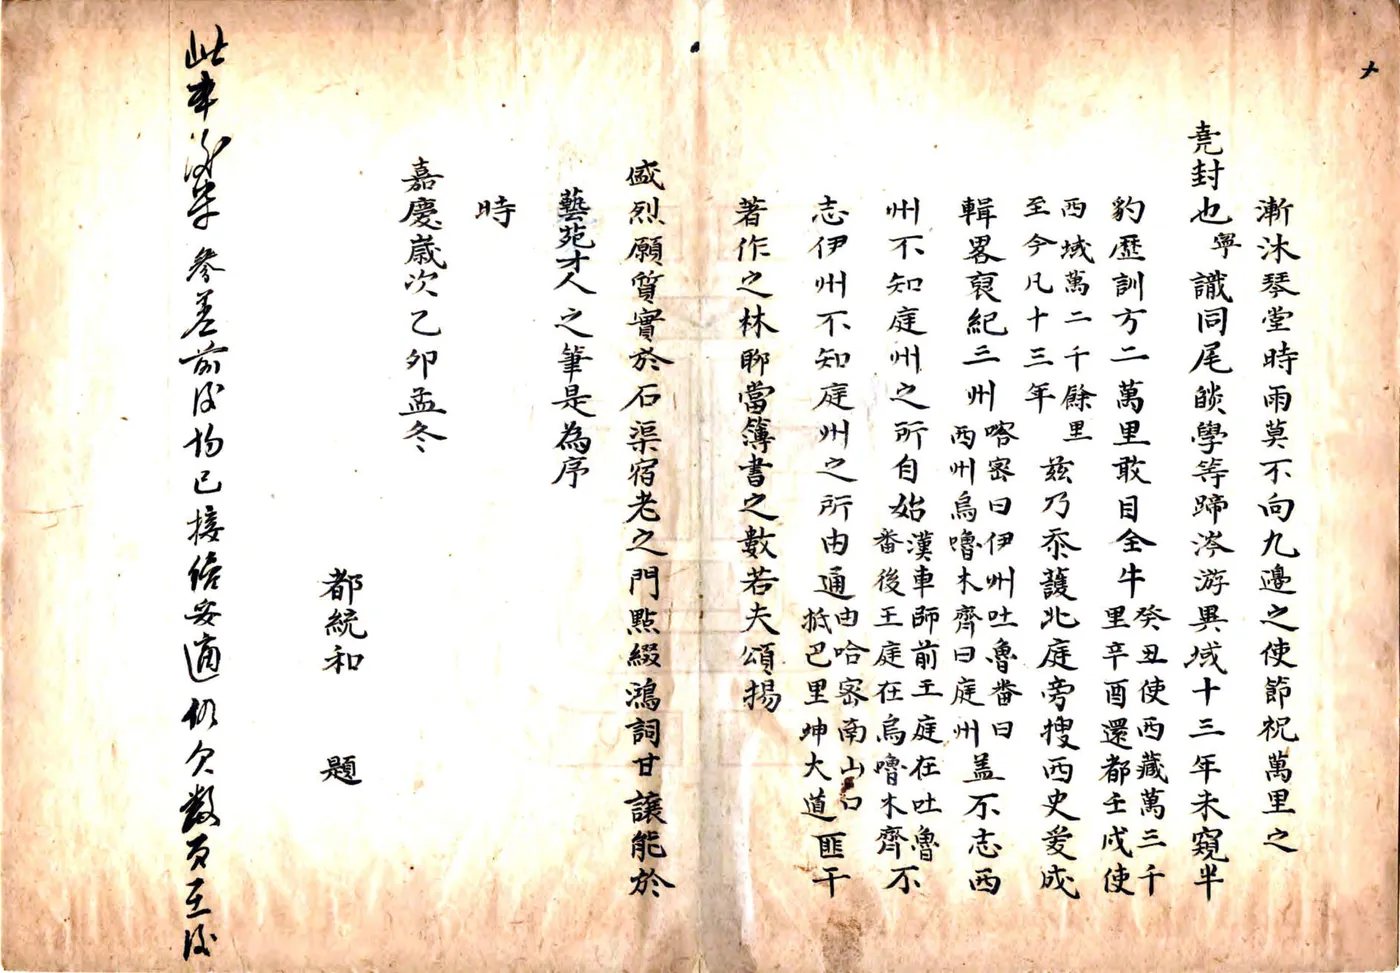 漸沐琴堂時雨莫不向九邊之使節祝萬里之
堯封也寧識同尾燄學等蹄涔游異域十三年未窺半
豹歷訓方二萬里敢目全牛癸丑使西藏萬三千里辛酉還都壬戌使
西域萬二千餘里至今凡十三年茲乃忝護北庭旁搜西史爰成
輯畧裒紀三州喀密曰伊州吐魯番曰西州烏嚕木齊曰庭州盖不志西
州不知庭州之所自始漢車師前王庭在吐魯番後王庭在烏嚕木齊不
志伊州不知庭州之所由通由哈密南山口抵巴里坤大道匪干
著作之林聊當簿書之數若夫頌揚
盛烈願質實於石渠宿老之門點綴鴻詞甘讓能於
藝苑才人之筆是為序
時
嘉慶歲次乙卯孟冬
都統和 題
此本後半參差前後均已接繕妥適欠數頁在後